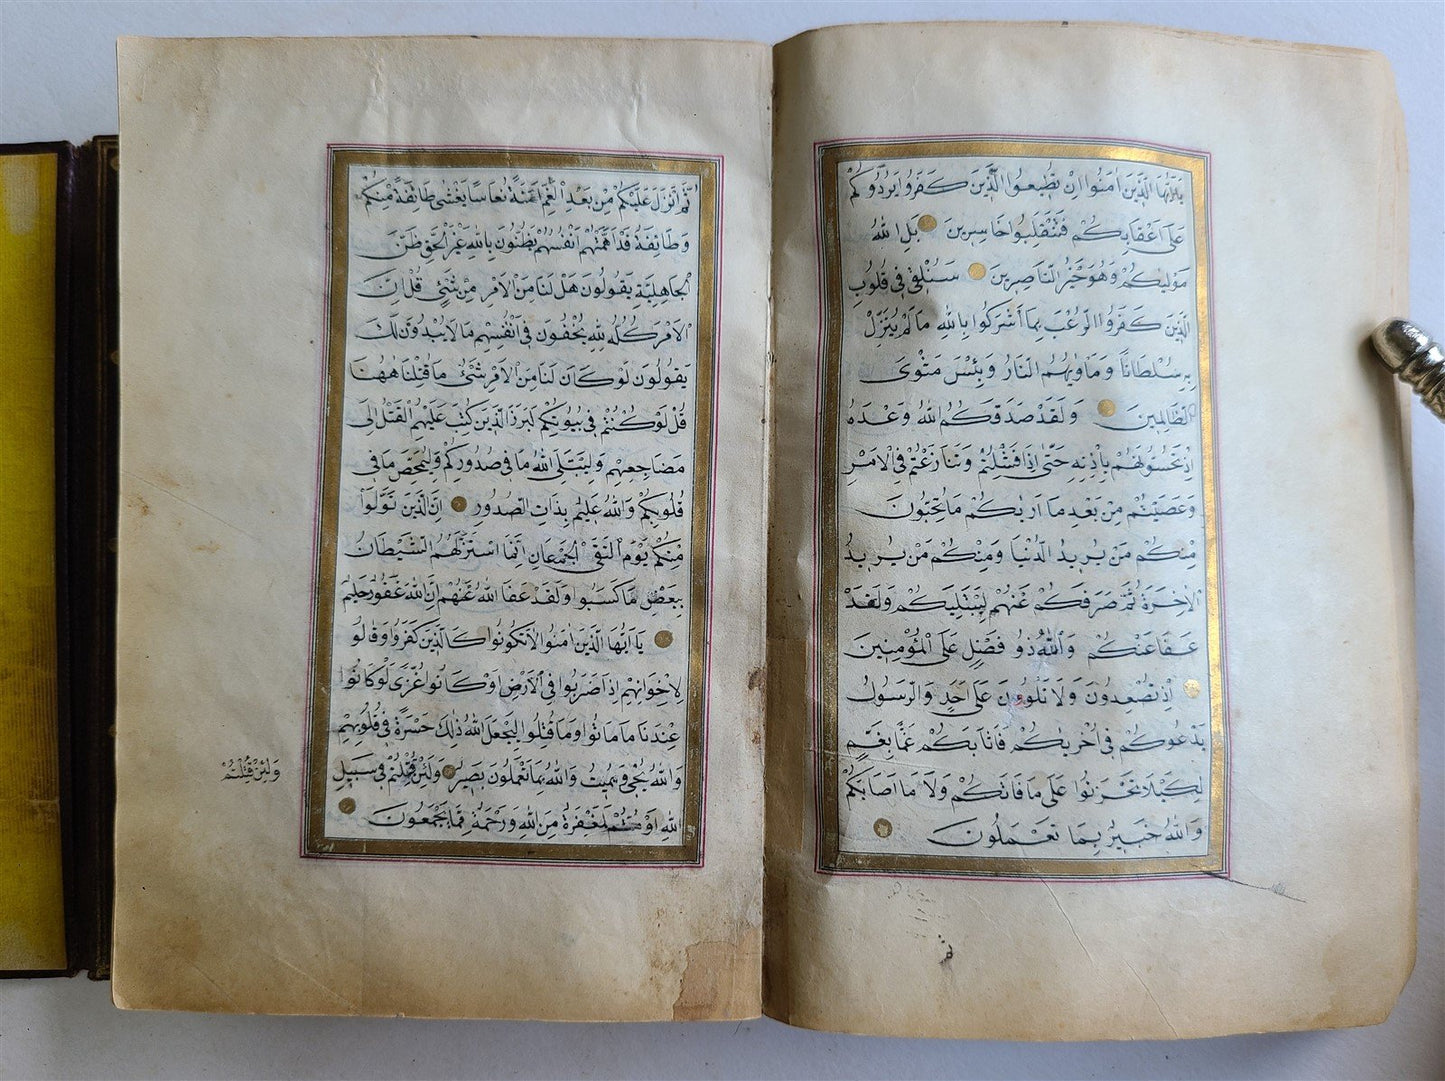 يَا اَيُّهَا الَّذِينَ اٰمَنُوا اِنْ تُطِيعُوا الَّذِينَ كَفَرُوا يَرُدُّوكُمْ
عَلٰى اَعْقَابِكُمْ فَتَنْقَلِبُوا خَاسِرِينَ بَلِ اللّٰهُ
مَوْلٰيكُمْ وَهُوَ خَيْرُ النَّاصِرِينَ سَنُلْقِى فِى قُلُوبِ
الَّذِينَ كَفَرُوا الرُّعْبَ بِمَا اَشْرَكُوا بِاللّٰهِ مَا لَمْ يُنَزِّلْ
بِهِ سُلْطَانًا وَمَاْوٰيهُمُ النَّارُ وَبِئْسَ مَثْوَى
الظَّالِمِينَ وَلَقَدْ صَدَقَكُمُ اللّٰهُ وَعْدَهُ
اِذْ تَحُسُّونَهُمْ بِاِذْنِهِ حَتّٰى اِذَا فَشِلْتُمْ وَتَنَازَعْتُمْ فِى الْاَمْرِ
وَعَصَيْتُمْ مِنْ بَعْدِ مَا اَرٰيكُمْ مَا تُحِبُّونَ
مِنْكُمْ مَنْ يُرِيدُ الدُّنْيَا وَمِنْكُمْ مَنْ يُرِيدُ
الْاٰخِرَةَ ثُمَّ صَرَفَكُمْ عَنْهُمْ لِيَبْتَلِيَكُمْ وَلَقَدْ
عَفَا عَنْكُمْ وَاللّٰهُ ذُو فَضْلٍ عَلَى الْمُؤْمِنِينَ
اِذْ تُصْعِدُونَ وَلَا تَلْوُونَ عَلٰى اَحَدٍ وَالرَّسُولُ
يَدْعُوكُمْ فِى اُخْرٰيكُمْ فَاَثَابَكُمْ غَمًّا بِغَمٍّ
لِكَيْلَا تَحْزَنُوا عَلٰى مَا فَاتَكُمْ وَلَا مَا اَصَابَكُمْ
وَاللّٰهُ خَبِيرٌ بِمَا تَعْمَلُونَ
ثُمَّ اَنْزَلَ عَلَيْكُمْ مِنْ بَعْدِ الْغَمِّ اَمَنَةً نُعَاسًا يَغْشٰى طَائِفَةً مِنْكُمْ
وَطَائِفَةٌ قَدْ اَهَمَّتْهُمْ اَنْفُسُهُمْ يَظُنُّونَ بِاللّٰهِ غَيْرَ الْحَقِّ ظَنَّ
الْجَاهِلِيَّةِ يَقُولُونَ هَلْ لَنَا مِنَ الْاَمْرِ مِنْ شَىْءٍ قُلْ اِنَّ
الْاَمْرَ كُلَّهُ لِلّٰهِ يُخْفُونَ فِى اَنْفُسِهِمْ مَا لَا يُبْدُونَ لَكَ
يَقُولُونَ لَوْ كَانَ لَنَا مِنَ الْاَمْرِ شَىْءٌ مَا قُتِلْنَا هٰهُنَا
قُلْ لَوْ كُنْتُمْ فِى بُيُوتِكُمْ لَبَرَزَ الَّذِينَ كُتِبَ عَلَيْهِمُ الْقَتْلُ اِلٰى
مَضَاجِعِهِمْ وَلِيَبْتَلِىَ اللّٰهُ مَا فِى صُدُورِكُمْ وَلِيُمَحِّصَ مَا فِى
قُلُوبِكُمْ وَاللّٰهُ عَلِيمٌ بِذَاتِ الصُّدُورِ اِنَّ الَّذِينَ تَوَلَّوْا
مِنْكُمْ يَوْمَ الْتَقَى الْجَمْعَانِ اِنَّمَا اسْتَزَلَّهُمُ الشَّيْطَانُ
بِبَعْضِ مَا كَسَبُوا وَلَقَدْ عَفَا اللّٰهُ عَنْهُمْ اِنَّ اللّٰهَ غَفُورٌ حَلِيمٌ
يَا اَيُّهَا الَّذِينَ اٰمَنُوا لَا تَكُونُوا كَالَّذِينَ كَفَرُوا وَقَالُوا
لِاِخْوَانِهِمْ اِذَا ضَرَبُوا فِى الْاَرْضِ اَوْ كَانُوا غُزًّى لَوْ كَانُوا
عِنْدَنَا مَا مَاتُوا وَمَا قُتِلُوا لِيَجْعَلَ اللّٰهُ ذٰلِكَ حَسْرَةً فِى قُلُوبِهِمْ
وَاللّٰهُ يُحْيِى وَيُمِيتُ وَاللّٰهُ بِمَا تَعْمَلُونَ بَصِيرٌ وَلَئِنْ قُتِلْتُمْ فِى سَبِيلِ
اللّٰهِ اَوْ مُتُّمْ لَمَغْفِرَةٌ مِنَ اللّٰهِ وَرَحْمَةٌ مِمَّا يَجْمَعُونَ
وَلَئِنْ قُتِلْتُمْ